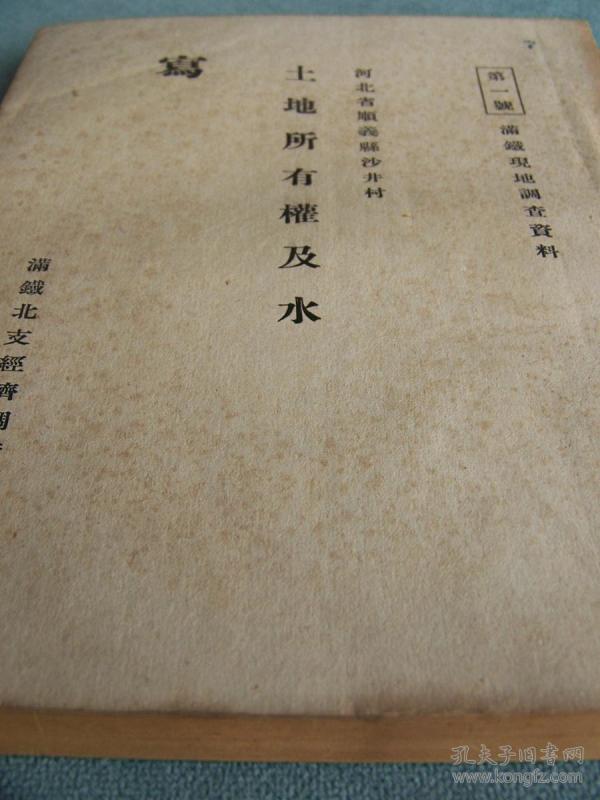 第一號
滿鐵現地調查資料
河北省順義縣沙井村
土地所有權及水
寫
滿鐵北支經濟調
孔夫子旧书网
www.kongfz.com